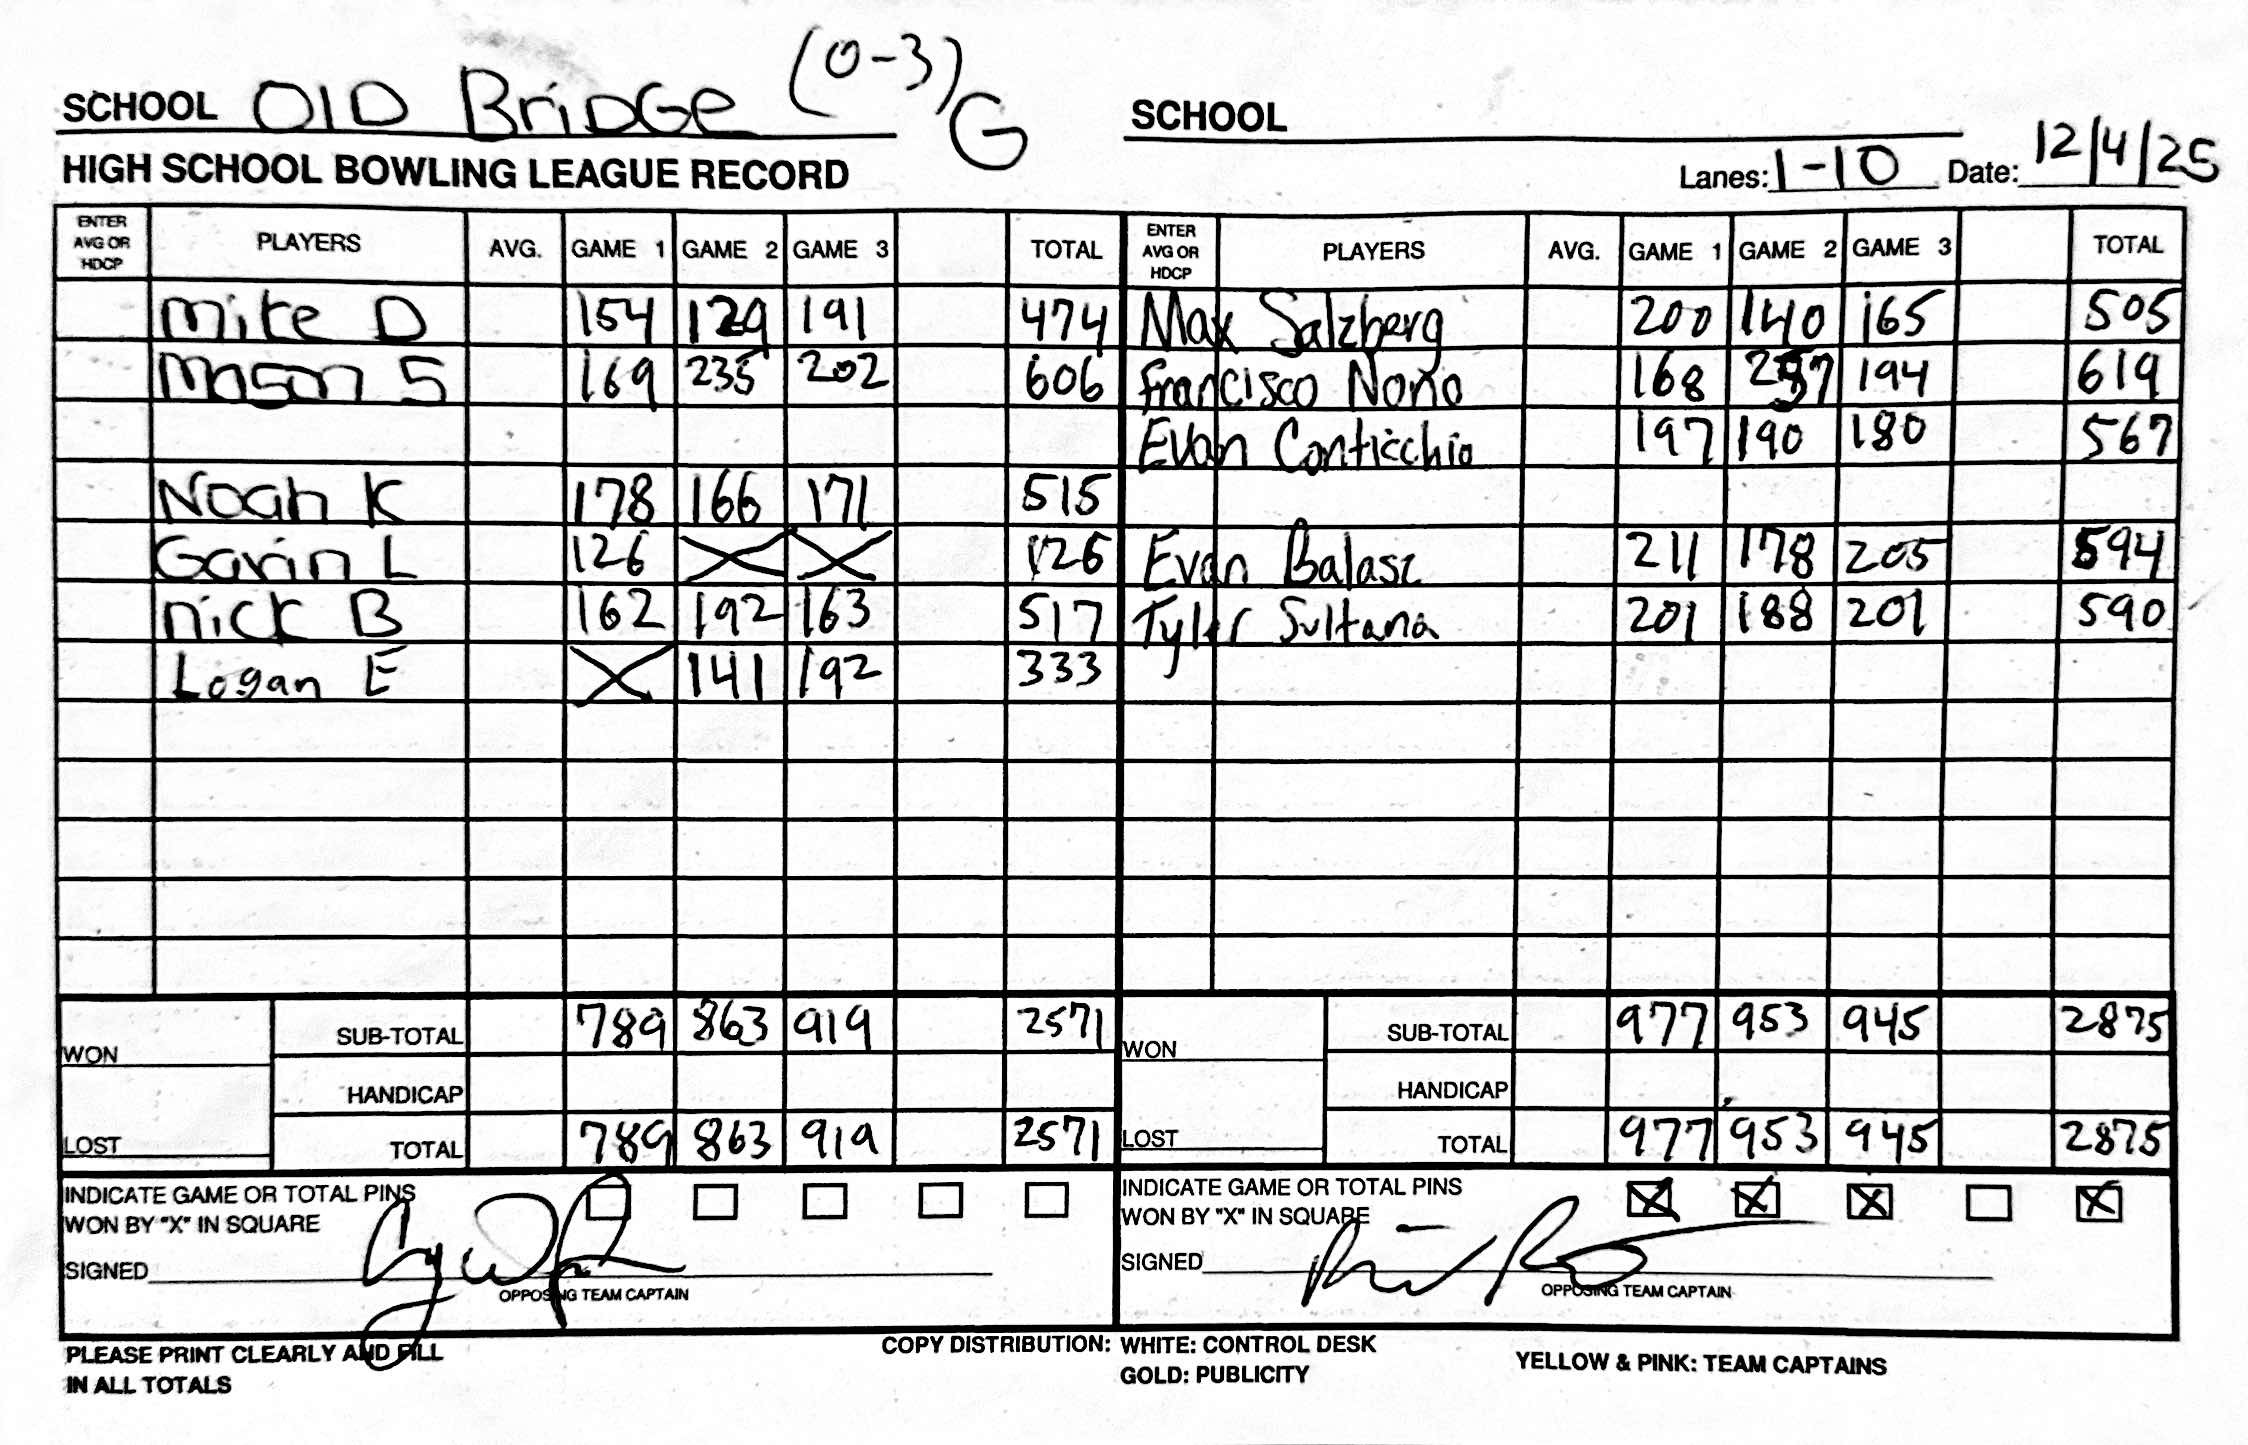 (0-3)
SCHOOL OlD BriDGe G SCHOOL
HIGH SCHOOL BOWLING LEAGUE RECORD Lanes: 1-10 Date: 12/4/25
ENTER AVG OR HDCP PLAYERS AVG. GAME 1 GAME 2 GAME 3 TOTAL ENTER AVG OR HDCP PLAYERS AVG. GAME 1 GAME 2 GAME 3 TOTAL
Mike D 154 129 191 474 Max Salzberg 200 140 165 505
Mason S 169 235 202 606 Francisco Nono 168 257 194 619
Evan Conticchio 197 190 180 567
Noah K 178 166 171 515
Gavin L 126 X X 126 Evan Balasz 211 178 205 594
Nick B 162 192 163 517 Tyler Sultana 201 188 201 590
Logan E X 141 192 333
WON SUB-TOTAL 789 863 919 2571 WON SUB-TOTAL 977 953 945 2875
HANDICAP HANDICAP
LOST TOTAL 789 863 919 2571 LOST TOTAL 977 953 945 2875
INDICATE GAME OR TOTAL PINS INDICATE GAME OR TOTAL PINS X X X X
WON BY "X" IN SQUARE WON BY "X" IN SQUARE
SIGNED SIGNED
OPPOSING TEAM CAPTAIN OPPOSING TEAM CAPTAIN
PLEASE PRINT CLEARLY AND FILL COPY DISTRIBUTION: WHITE: CONTROL DESK YELLOW & PINK: TEAM CAPTAINS
IN ALL TOTALS GOLD: PUBLICITY